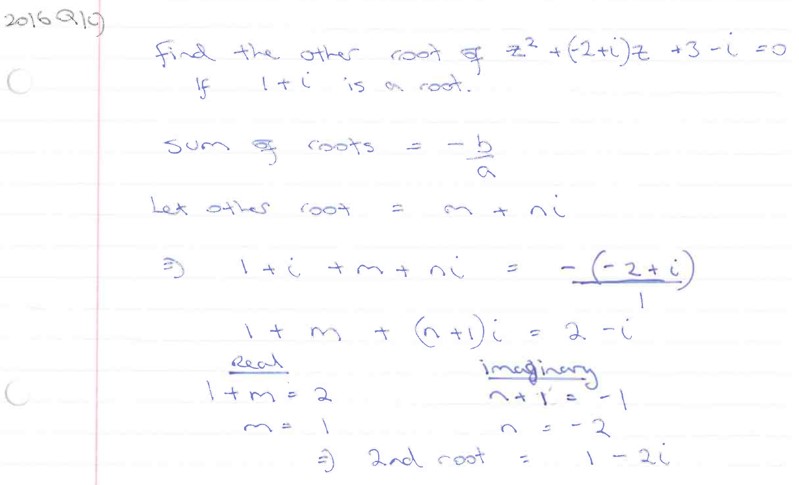 2016 Q1(c)
Find the other root of z² + (-2+i)z + 3 - i = 0
If 1+i is a root.
Sum of roots = - b/a
Let other root = m + ni
⇒ 1 + i + m + ni = -(-2+i)/1
1 + m + (n+1)i = 2 - i
Real imaginary
1 + m = 2 n + 1 = -1
m = 1 n = -2
⇒ 2nd root = 1 - 2i